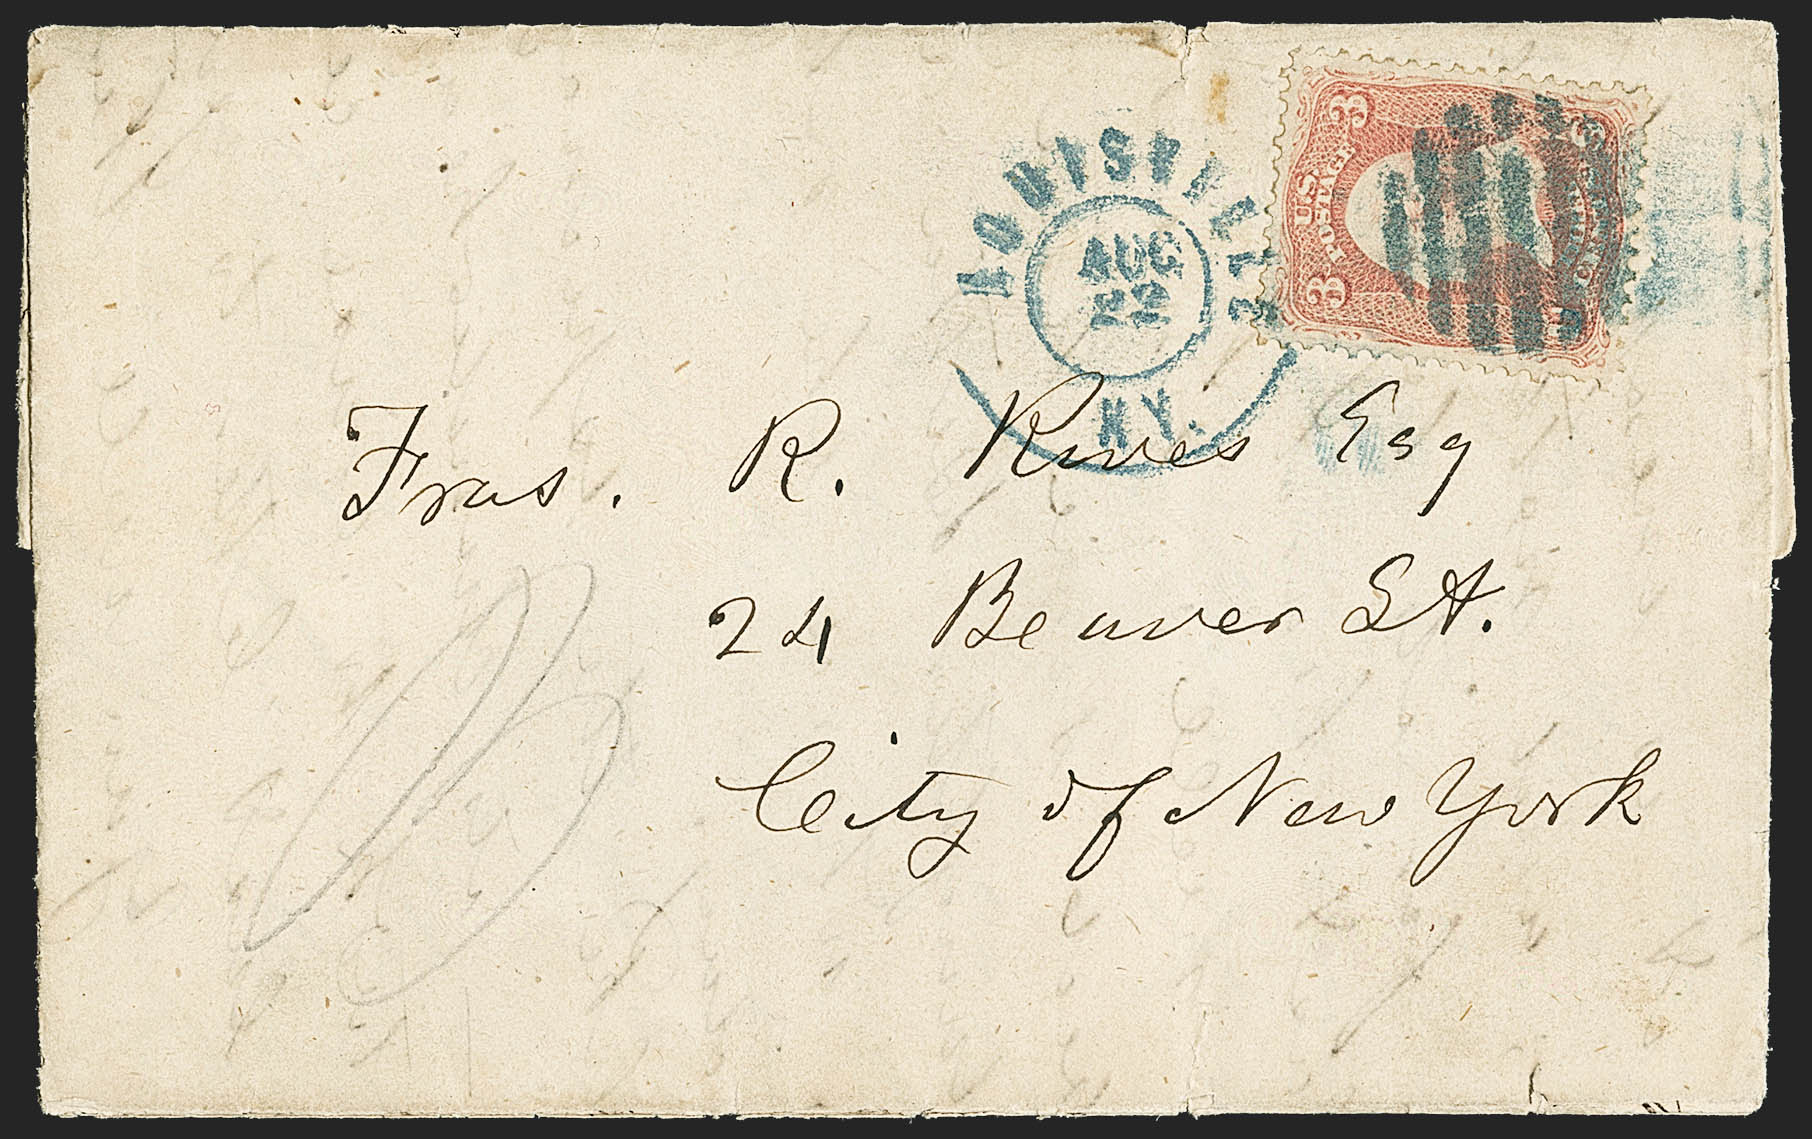 LOUISVILLE
AUG
12
KY.
3 U.S. POSTAGE 3
Fras. R. Rives Esq
24 Beaver St.
City of New York